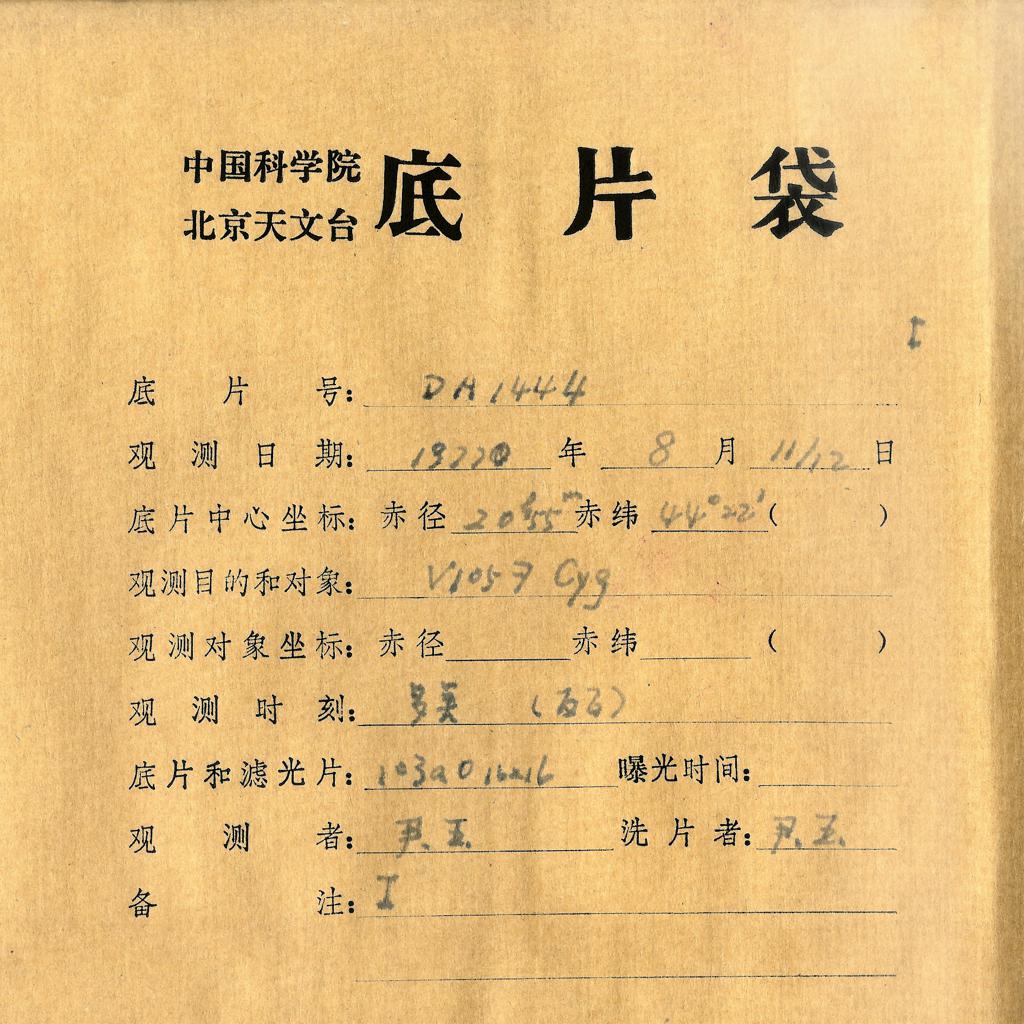 中国科学院
北京天文台
底片袋
I
底片号: DA1444
观测日期: 年 8 月 11/12 日
底片中心坐标: 赤径 20h55m 赤纬 44°22' ( )
观测目的和对象: V1057 Cyg
观测对象坐标: 赤径 赤纬 ( )
观测时刻:
底片和滤光片: 103aO 16x16 曝光时间:
观测者: 尹. 王. 洗片者: 尹. 王.
备注: I